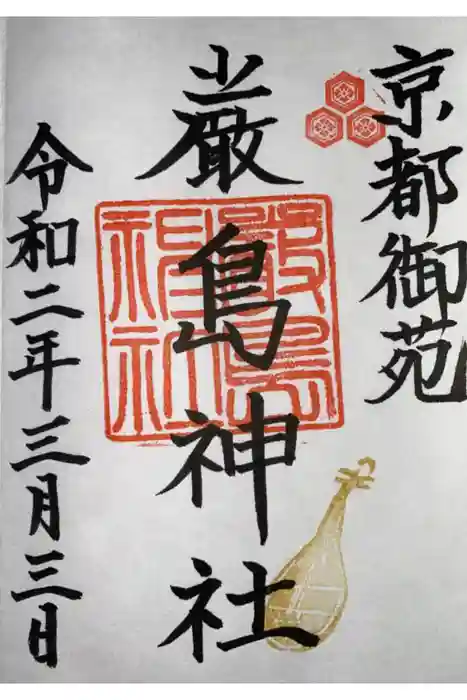 京都御苑
厳島神社
厳島
神社
令和二年三月三日